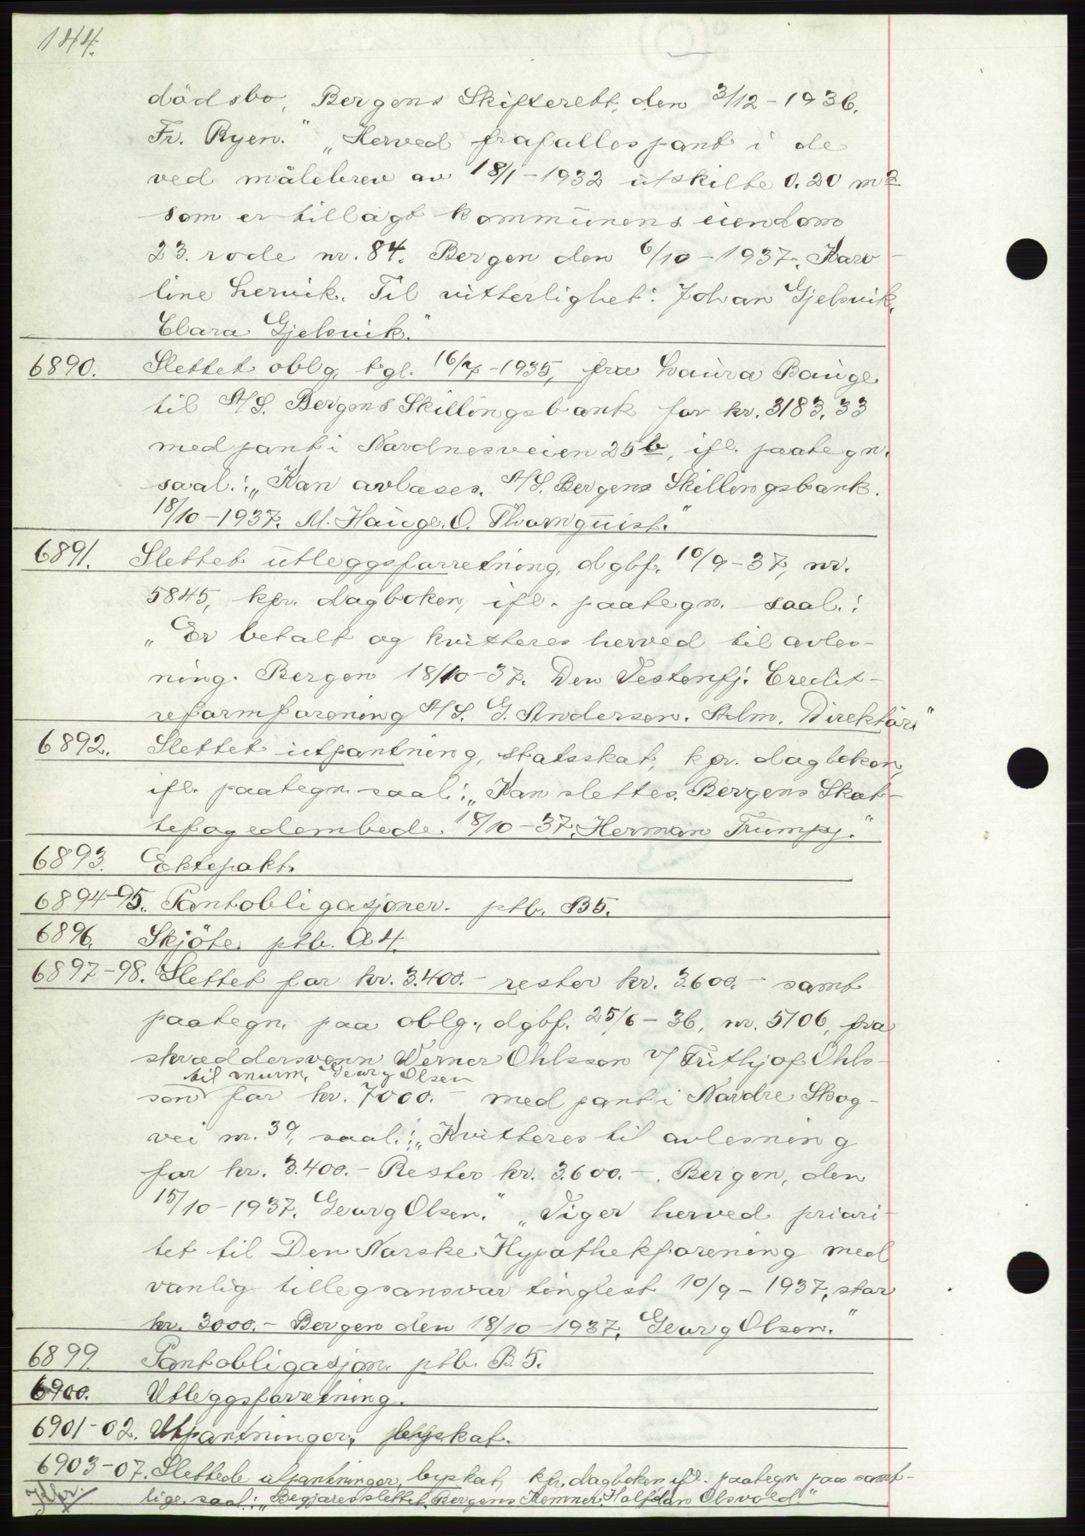 144.
dödsbo, Bergens Skifterett, den 3/12 - 1936.
Fr. Ryen." "Herved frafalles pant i de
ved målebrev av 18/1 - 1932 utskilte 0.20 m2
som er tillagt kommunens eiendom
23. rode nr. 84. Bergen den 6/10 - 1937. Karo-
line Lervik. Til vitterlighet: Johan Gjelsvik,
Clara Gjelsvik."
6890. Slettet oblg. tgl. 16/7 - 1935, fra Laura Bauge
til A/S. Bergens Skillingsbank for kr. 3183,33
med pant i Nordnesveien 25b, ifl. paategn.
saal.: "Kan avlases. A/S. Bergens Skillingsbank.
18/10 - 1937. M. Hauge. O. Thornquist."
6891. Slettet utleggsforretning, dgbf. 10/9 - 37, nr.
5845, kfr. dagboken, ifl. paategn. saal.:
"Er betalt og kvitteres herved til avles-
ning. Bergen 18/10 - 37. Den Vestenfj. Credit-
reformforening A/S. G. Andersen. Adm. Direktör."
6892. Slettet utpantning, statsskat, kfr. dagboken,
ifl. paategn. saal.: "Kan slettes. Bergens Skat-
tefogedembede. 18/10 - 37. Herman Trumpy."
6893. Ektepakt.
6894-95. Pantobligasjoner. ptb. B5.
6896. Skjöte. ptb. A4.
6897-98. Slettet for kr. 3.400.- rester kr. 3600.- samt
paategn. paa oblg., dgbf. 25/6 - 36, nr. 5106, fra
skreddersvenn Werner Ohlsson v/ Frithjof Ohls-
til murm. Georg Olsen
son for kr. 7000.- med pant i Nordre Skog-
vei nr. 39, saal.: "Kvitteres til avlesning
for kr. 3.400.- Rester kr. 3.600.-. Bergen, den
15/10 - 1937. Georg Olsen." "Viger herved priori-
tet til Den Norske Hypothekforening med
vanlig tillegsansvar tinglest 10/9 - 1937, stor
kr. 3000.- Bergen den 18/10 - 1937. Georg Olsen."
6899. Pantobligasjon. ptb. B5.
6900. Utleggsforretning.
6901-02. Utpantninger, byskat.
6903-07. Slettede utpantninger, byskat, kfr. dagboken ifl. paategn. paa samt-
lige, saal.: "Begjæres slettet. Bergens Kemner. Halfdan Olsvold"